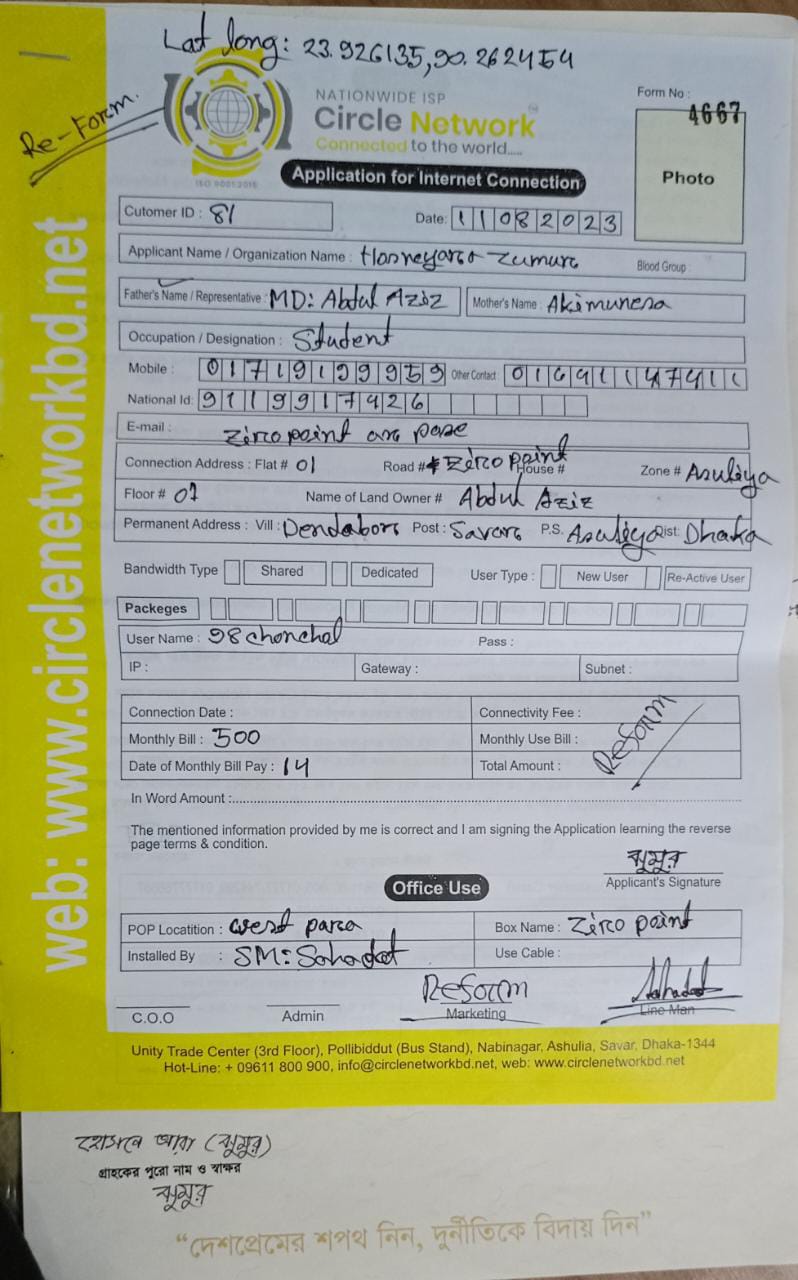 Lat long: 23.926135,90.262454
Re-Form.
NATIONWIDE ISP
Circle Network
Connected to the world.....
ISO 9001:2015
Form No :
4667
Photo
Application for Internet Connection
Cutomer ID : 81
Date: 11082023
Applicant Name / Organization Name : Hasneyara Zumur
Blood Group :
Father's Name / Representative : MD: Abdul Aziz
Mother's Name : Akimunesa
Occupation / Designation : Student
Mobile : 01719199959
Other Contact 01691147411
National Id: 9119917926
E-mail :
Zirco point
Connection Address : Flat # 01
Road # Zirco point
House #
Zone # Asuliya
Floor # 07
Name of Land Owner # Abdul Aziz
Permanent Address : Vill : Dendabor Post : Savar P.S. Asuliya Dist: Dhaka
Bandwidth Type
Shared
Dedicated
User Type :
New User
Re-Active User
Packeges
User Name : 98chonchal
Pass :
IP :
Gateway :
Subnet :
Connection Date :
Connectivity Fee :
Monthly Bill : 500
Monthly Use Bill :
Date of Monthly Bill Pay : 14
Total Amount :
Reform
In Word Amount :
The mentioned information provided by me is correct and I am signing the Application learning the reverse
page terms & condition.
ঝুমুর
Applicant's Signature
Office Use
POP Locatition : west para
Box Name : Zirco point
Installed By : SM: Sohadat
Use Cable :
C.O.O
Admin
Reform
Marketing
Line Man
Unity Trade Center (3rd Floor), Pollibiddut (Bus Stand), Nabinagar, Ashulia, Savar, Dhaka-1344
Hot-Line: + 09611 800 900, info@circlenetworkbd.net, web: www.circlenetworkbd.net
web: www.circlenetworkbd.net
হোসনে আরা (ঝুমুর)
গ্রাহকের পুরো নাম ও স্বাক্ষর
ঝুমুর
“দেশপ্রেমের শপথ নিন, দুর্নীতিকে বিদায় দিন”